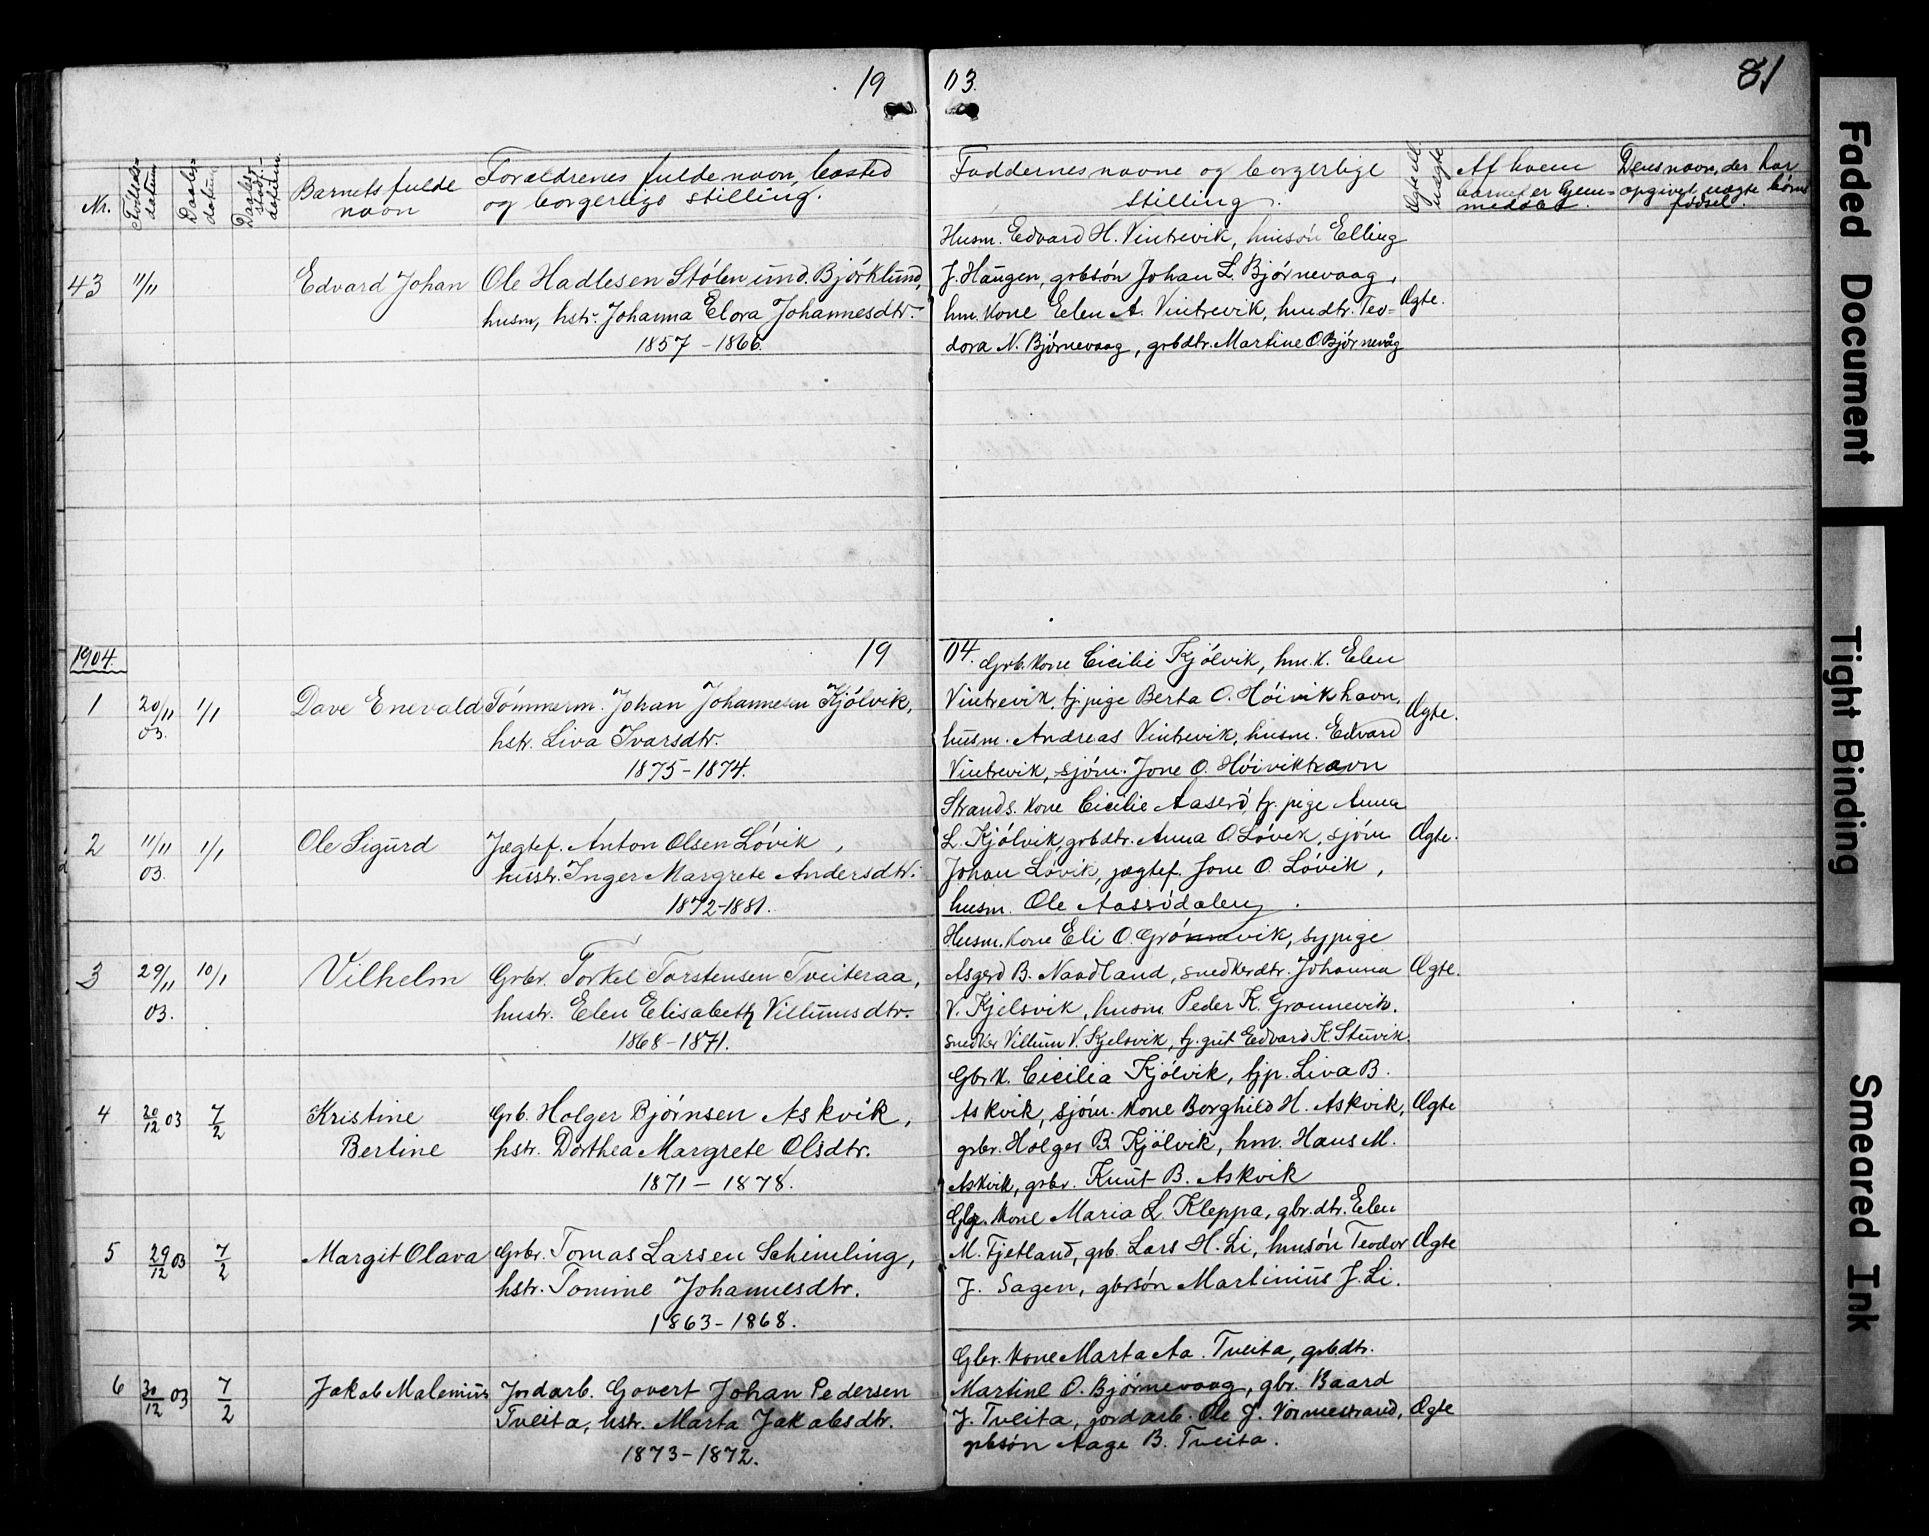 19 03. 81
Nr. Fødsels-datum Daabs-datum Daabs-stadf.-datum. Barnets fulde navn Forældrenes fulde navn, bosted og borgerlige stilling. Faddernes navne og borgerlige stilling. Ægte ell. uægte Af hvem barnet er hjem-medøbt. Dens navn, der har opgivet uægte børns fødsel.
Husm. Edvard H. Vintrevik, hmsøn Elling
43 11/11 Edvard Johan Ole Hadlesen Stølen und. Bjørklund, J. Haugen, grbsøn Johan L. Bjørnevaag,
husm, hstr. Johanna Elora Johannesdtr. hm. kone Elen A. Vintrevik, hmdtr. Teo- Ægte.
1857 - 1866. dora N. Bjørnevaag, grbdtr. Martine O. Bjørnevåg
1904. 19 04. Grb. kone Cicilie Kjølvik, hm. k. Elen
1 20/11 03. 1/1 Dave Enevald Tømmerm. Johan Johannesen Kjølvik, Vintrevik, tj. pige Berta O. Høivikhavn, Ægte.
hstr. Liva Ivarsdtr. husm. Andreas Vintrevik, husm. Edvard
1875 - 1874. Vintrevik, sjøm. Jone O. Høivikhavn
Strands. kone Cicilie Aaserø, tj. pige Anna
2 11/11 03. 1/1 Ole Sigurd Jægtef. Anton Olsen Løvik, L. Kjølvik, grbdtr. Anna O. Løvik, sjøm Ægte.
hustr. Inger Margrete Andersdtr. Johan Løvik, jægtef. Jone O. Løvik,
1872-1881. husm. Ole Aasrødalen.
Husm. kone Eli O. Grønnevik, sypige
3 29/11 03. 10/1 Vilhelm Grbr. Torkel Torstensen Tveiteraa, Asgerd B. Naadland, snedkerdtr. Johanna Ægte.
hustr. Elen Elisabeth Villumsdtr. V. Kjelsvik, husm. Peder K. Grønnevik.
1868 - 1871. snedker Villum V. Kjelsvik, tj. gut Edvard K. Stuvik.
Gbr k. Cicilia Kjølvik, tjp. Liva B.
4 20/12 03 7/2 Kristine Grb. Holger Bjørnsen Askvik, Askvik, sjøm. kone Borghild H. Askvik, Ægte
Bertine hstr. Dorthea Margrete Olsdtr. grbr. Holger B. Kjølvik, hm. Hans M.
1871 - 1878. Askvik, grbr. Knut B. Askvik
Gbr. kone Maria L. Kleppa, gbr. dtr. Elen
5 29/12 03 7/2 Margit Olava Grbr. Tomas Larsen Schimling, M. Fjetland, grb. Lars H. Li, hmsøn Teodor Ægte
hstr. Tomine Johannesdtr. J. Sagen, gbrsøn Martinius J. Li.
1863 - 1868.
Gbr. kone Marta Aa. Tveita, grbdtr.
6 30/12 03 7/2 Jakob Malenius Jordarb. Govert Johan Pedersen Martine O. Bjørnevaag, gbr. Baard
Tveita, hstr. Marta Jakobsdtr. J. Tveita, jordarb. Ole J. Vormestrand, Ægte
1873 - 1872. grbsøn Aage B. Tveita.
Faded Document
Tight Binding
Smeared Ink